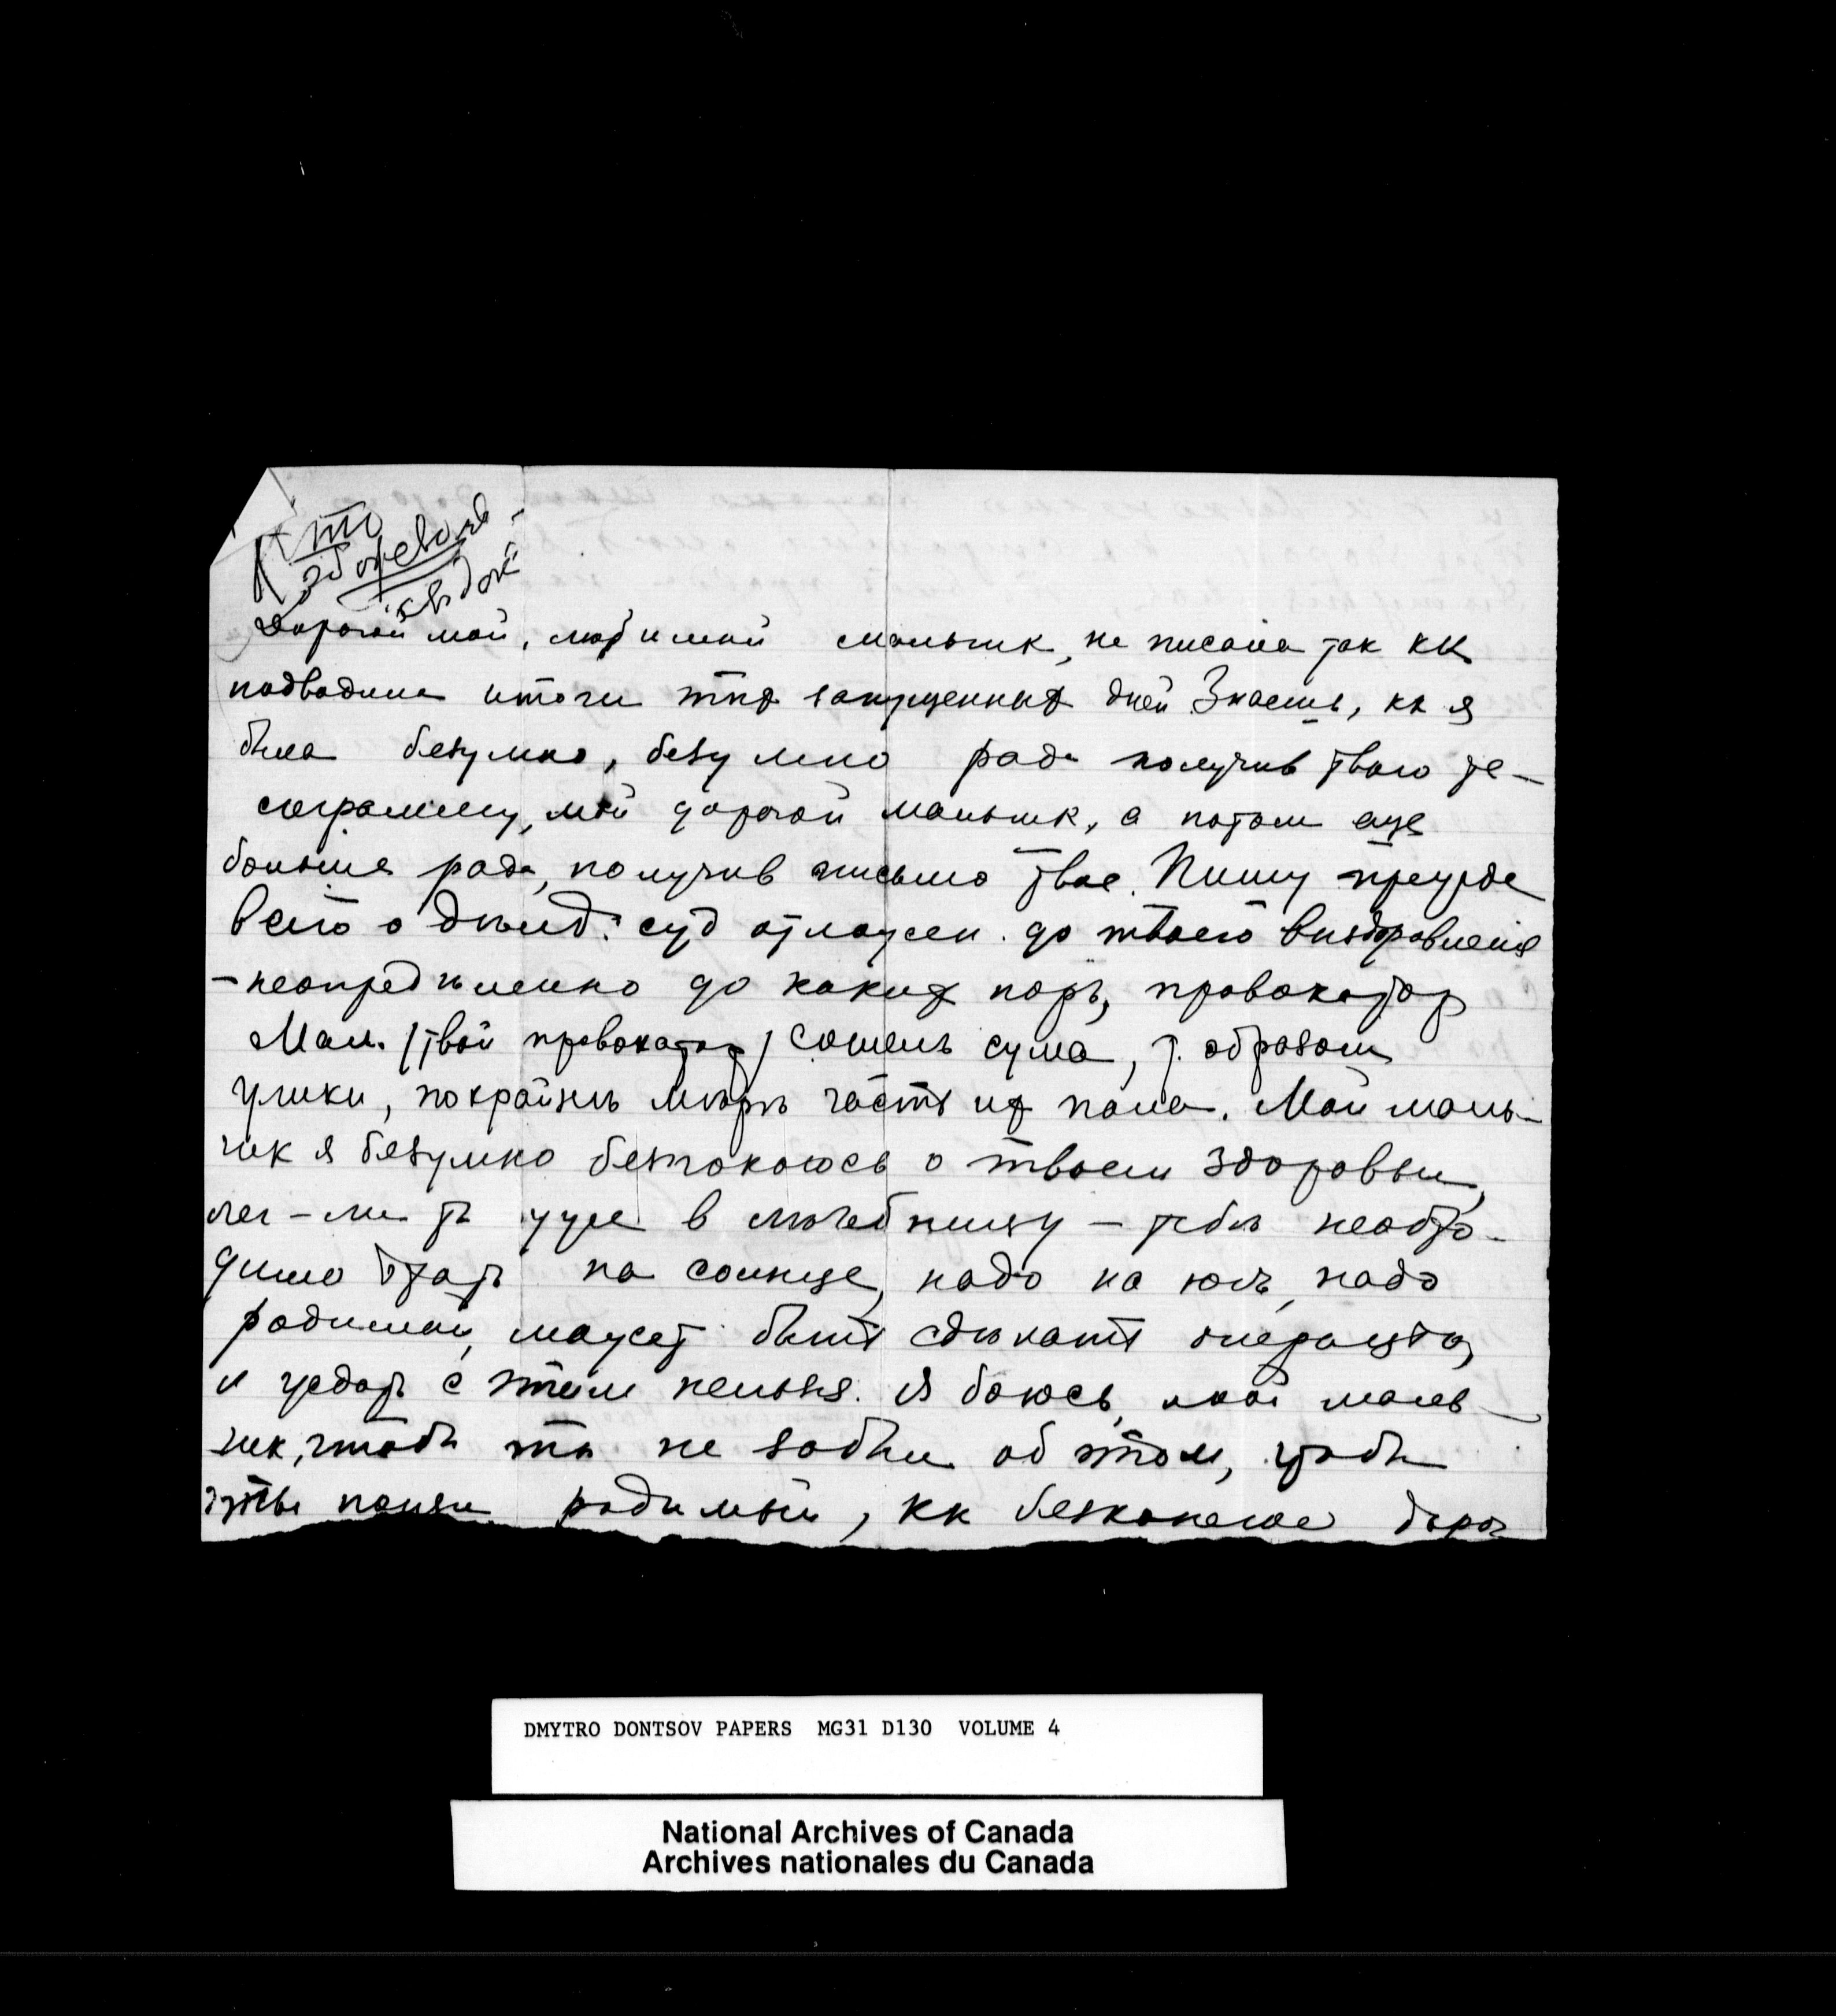 Дорогой мой, любимый мальчик, не писала так кк
подводила итоги этих запущенных дней Знаешь, кк я
была безумно, безумно рада получив твою те-
леграмму, мой дорогой мальчик, а потом еще
больше рада, получив письмо твое. Пишу прежде
всего о дѣлѣ: суд отложен до твоего выздоровленія
-неопредѣленно до каких поръ, провокатор
Мал. /твой провокатор/ сошелъ сума, т. образом
улики, покрайнѣ мѣрѣ часть их пала. Мой маль-
чик я безумно безпокоюсь о твоем здоровьи,
лег-ли ты уже в лѣчебницу - тебѣ необхо-
димо ѣхать на солнце, надо на югъ, надо
родимый, может быть сдѣлать операцію,
и ждать с этим нельзя. Я боюсь, мой маль-
чик, чтобы ты не забыл об этом, чтобы
родимый, кк безконечно дорог
DMYTRO DONTSOV PAPERS MG31 D130 VOLUME 4
National Archives of Canada
Archives nationales du Canada